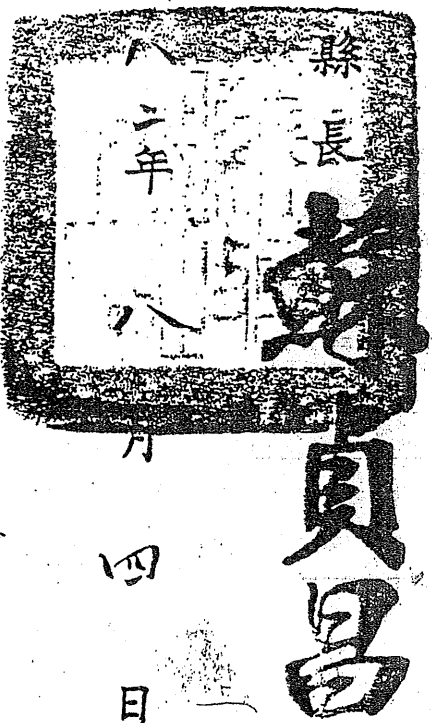 縣長蘇貞昌
八二年八月四日